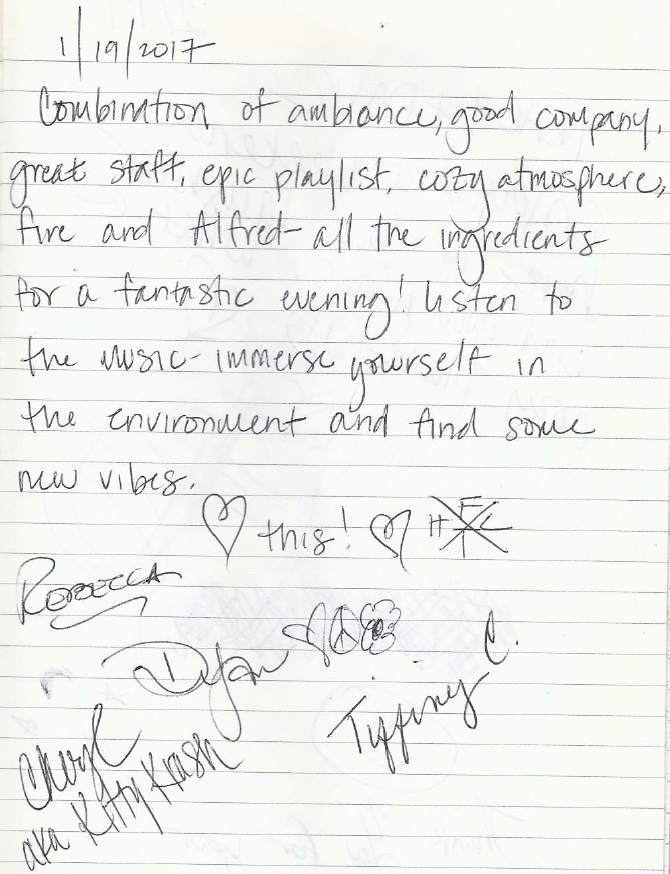 1/19/2017
Combination of ambiance, good company,
great staff, epic playlist, cozy atmosphere,
fire and Alfred - all the ingredients
for a fantastic evening! Listen to
the music - immerse yourself in
the environment and find some
new vibes.
♡ this! ♡
Rebecca
Dylan
Tiffiny C.
Cheryl
aka Kitty Krash